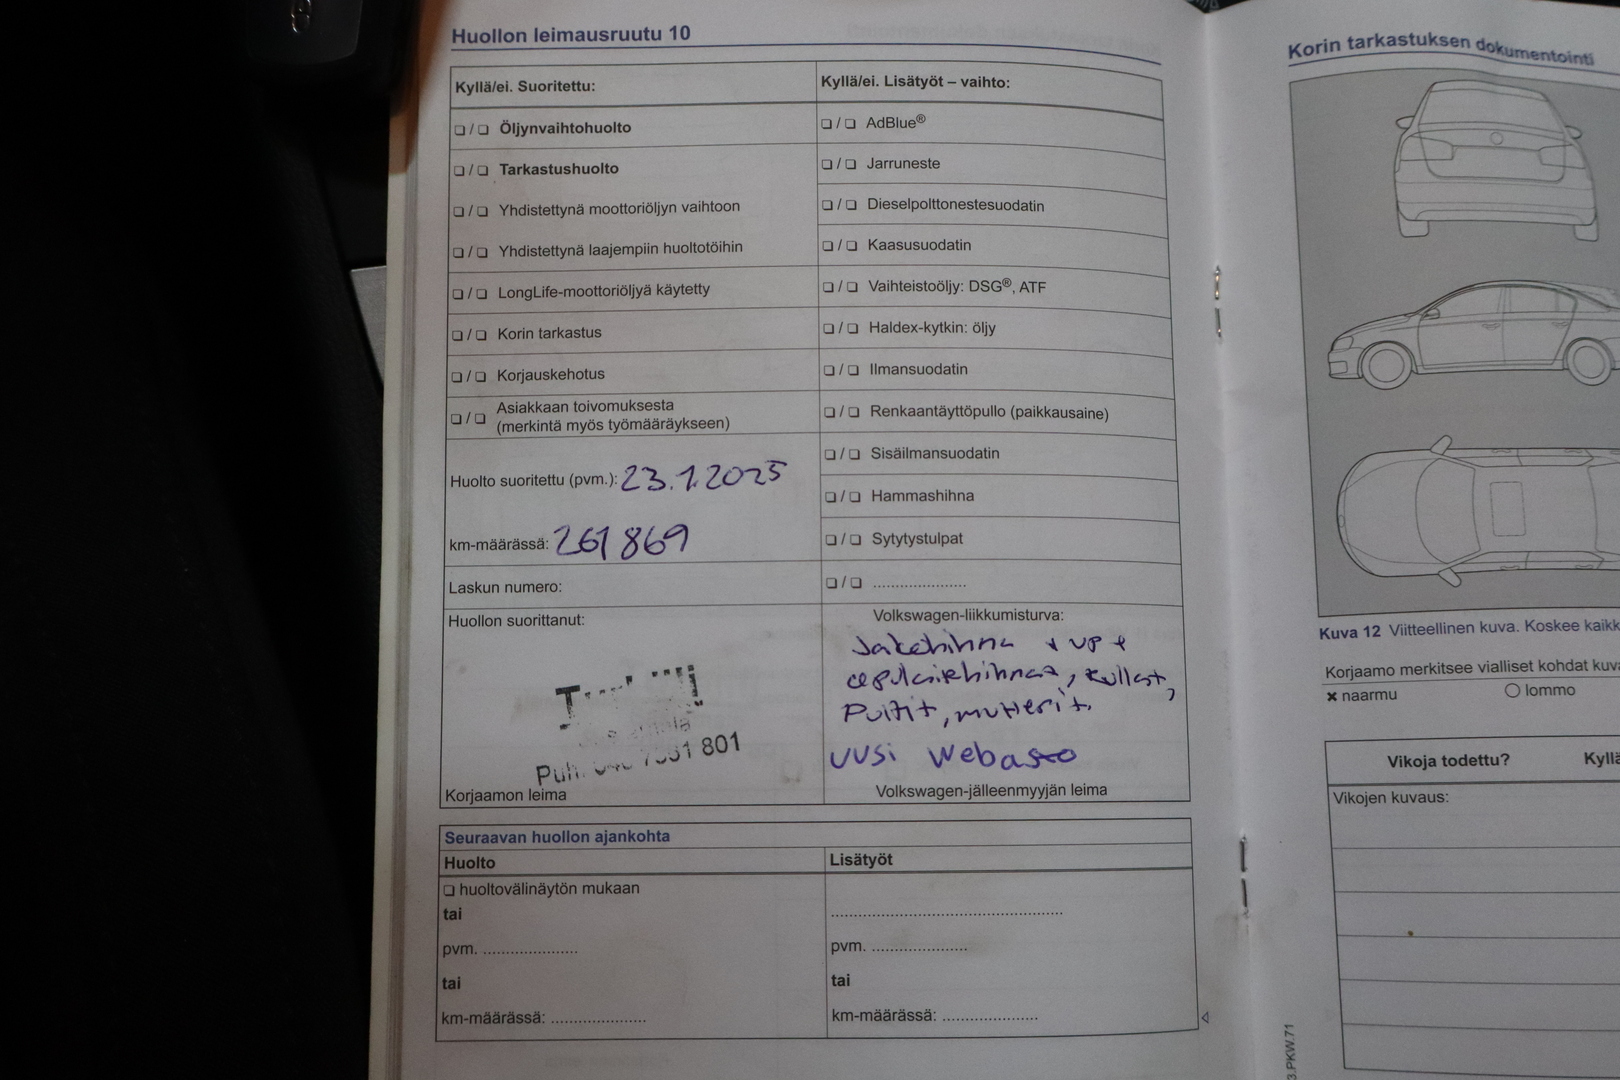 Huollon leimausruutu 10
Kyllä/ei. Suoritettu:
❏ / ❏ Öljynvaihtohuolto
❏ / ❏ Tarkastushuolto
❏ / ❏ Yhdistettynä moottoriöljyn vaihtoon
❏ / ❏ Yhdistettynä laajempiin huoltotöihin
❏ / ❏ LongLife-moottoriöljyä käytetty
❏ / ❏ Korin tarkastus
❏ / ❏ Korjauskehotus
❏ / ❏ Asiakkaan toivomuksesta
(merkintä myös työmääräykseen)
Huolto suoritettu (pvm.): 23.1.2025
km-määrässä: 261 869
Laskun numero:
Huollon suorittanut:
Puh. 801
Korjaamon leima
Kyllä/ei. Lisätyöt – vaihto:
❏ / ❏ AdBlue®
❏ / ❏ Jarruneste
❏ / ❏ Dieselpolttonestesuodatin
❏ / ❏ Kaasusuodatin
❏ / ❏ Vaihteistoöljy: DSG®, ATF
❏ / ❏ Haldex-kytkin: öljy
❏ / ❏ Ilmansuodatin
❏ / ❏ Renkaantäyttöpullo (paikkausaine)
❏ / ❏ Sisäilmansuodatin
❏ / ❏ Hammashihna
❏ / ❏ Sytytystulpat
❏ / ❏ .....................
Volkswagen-liikkumisturva:
Jakohihna + VP +
rullat,
Pultit, mutterit.
UUSI Webasto
Volkswagen-jälleenmyyjän leima
Seuraavan huollon ajankohta
Huolto
❏ huoltovälinäytön mukaan
tai
pvm. .....................
tai
km-määrässä: .....................
Lisätyöt
.....................
pvm. .....................
tai
km-määrässä: .....................
Korin tarkastuksen dokumentointi
Kuva 12 Viitteellinen kuva. Koskee kaikk
Korjaamo merkitsee vialliset kohdat kuv
× naarmu
○ lommo
Vikoja todettu? Kyllä
Vikojen kuvaus:
3.PKW.71